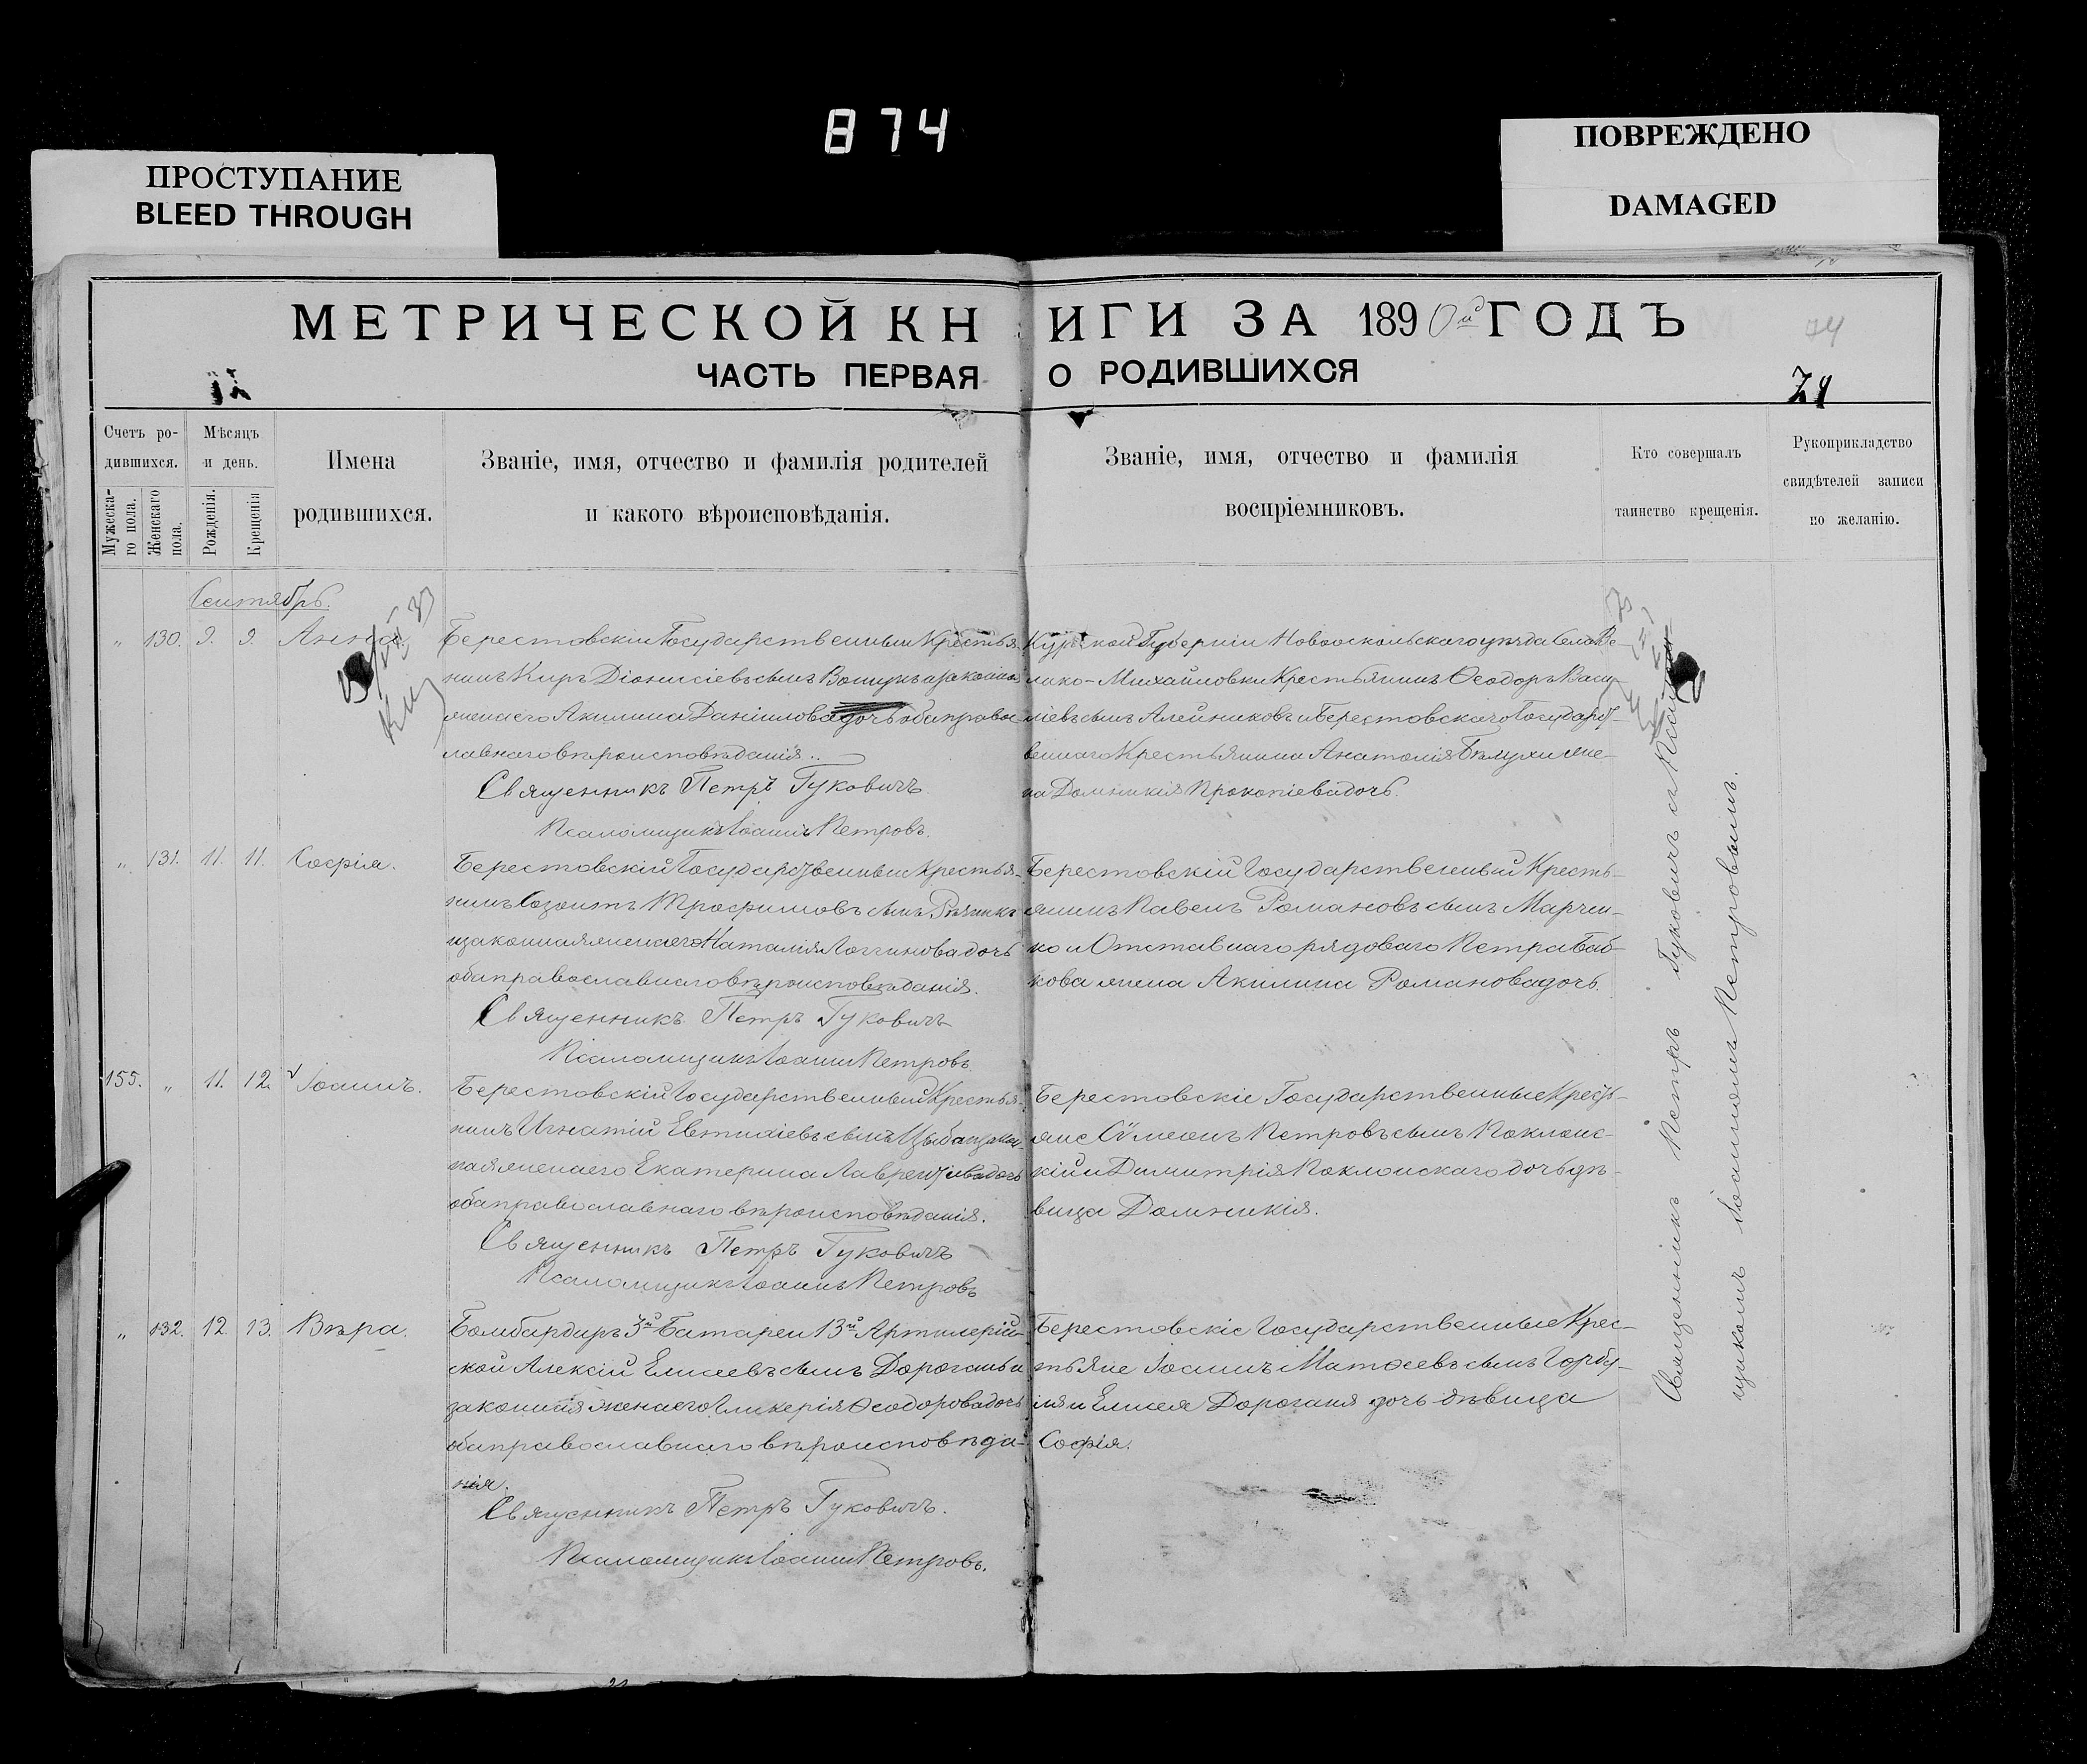 874
ПРОСТУПАНИЕ
BLEED THROUGH
ПОВРЕЖДЕНО
DAMAGED
МЕТРИЧЕСКОЙ КНИГИ ЗА 1890й ГОДЪ
74
ЧАСТЬ ПЕРВАЯ О РОДИВШИХСЯ
74
Счетъ родившихся.
Мужескаго пола.
Женскаго пола.
Мѣсяцъ и день.
Рожденія.
Крещенія
Имена родившихся.
Званіе, имя, отчество и фамилія родителей
и какого вѣроисповѣданія.
Званіе, имя, отчество и фамилія
воспріемниковъ.
Кто совершалъ
таинство крещенія.
Рукоприкладство
свидѣтелей записи
по желанію.
Сентябрь.
" 130. 9. 9. Анна
Берестовскій Государственный Крестья-
нинъ Киръ Діонисіевъ сынъ и законная
жена его Акилина Даніилова дочь оба православ-
лавнаго вѣроисповѣданія.
Священникъ Петръ Гуковичъ
Псаломщикъ Іоаннъ Петровъ.
Курской Губерніи Новооскольскаго уѣзда Села Ве-
лико-Михайловки Крестьянинъ Ѳеодоръ Васи-
ліевъ сынъ Алейниковъ и Берестовскаго Государст-
веннаго Крестьянина Анатолія Бѣлухи же-
на Домникія Прокопіева дочь.
" 131. 11. 11. Софія.
Берестовскій Государственный Крестья-
нинъ Созонтъ Трофимовъ сынъ
и законная жена его Наталія Логгинова дочь
оба православнаго вѣроисповѣданія.
Священникъ Петръ Гуковичъ
Псаломщикъ Іоаннъ Петровъ
Берестовскій Государственный Кресть-
янинъ Павелъ Романовъ сынъ Марчен-
ко и Отставнаго рядоваго Петра Баб-
кова жена Акилина Романова дочь.
155. " 11. 12. Іоаннъ.
Берестовскій Государственный Крестья-
нинъ Игнатій Евтихіевъ сынъ Цыба и закон-
ная жена его Екатерина Лаврентіева дочь
оба православнаго вѣроисповѣданія.
Священникъ Петръ Гуковичъ
Псаломщикъ Іоаннъ Петровъ
Берестовскіе Государственные Кресть-
яне Сѵмеонъ Петровъ сынъ Поклонс-
кій и Димитрія Поклонскаго дочь дѣ-
вица Домникія.
" 132. 12. 13. Вѣра.
Бомбардиръ 3й Батареи 13й Артилерій-
ской Алексій Елисеевъ сынъ Дорогань и
законная жена его Гликерія Ѳеодорова дочь
оба православнаго вѣроисповѣда-
нія.
Священникъ Петръ Гуковичъ.
Псаломщикъ Іоаннъ Петровъ.
Берестовскіе Государственные Крес-
тьяне Іоаннъ Матѳеевъ сынъ Горбу-
ля и Елисея Дороганя дочь дѣвица
Софія.
Священникъ Петръ Гуковичъ съ Псалом-
щикомъ Іоанномъ Петровымъ.